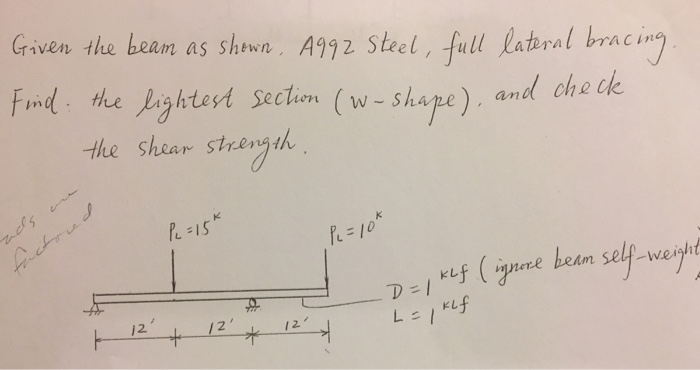 Given the beam as shown. A992 Steel, full lateral bracing.
Find: the lightest section (w-shape), and check
the shear strength.
factored
PL=15K
PL=10K
D=1 KLf (ignore beam self-weight
L=1 KLf
12' 12' 12'